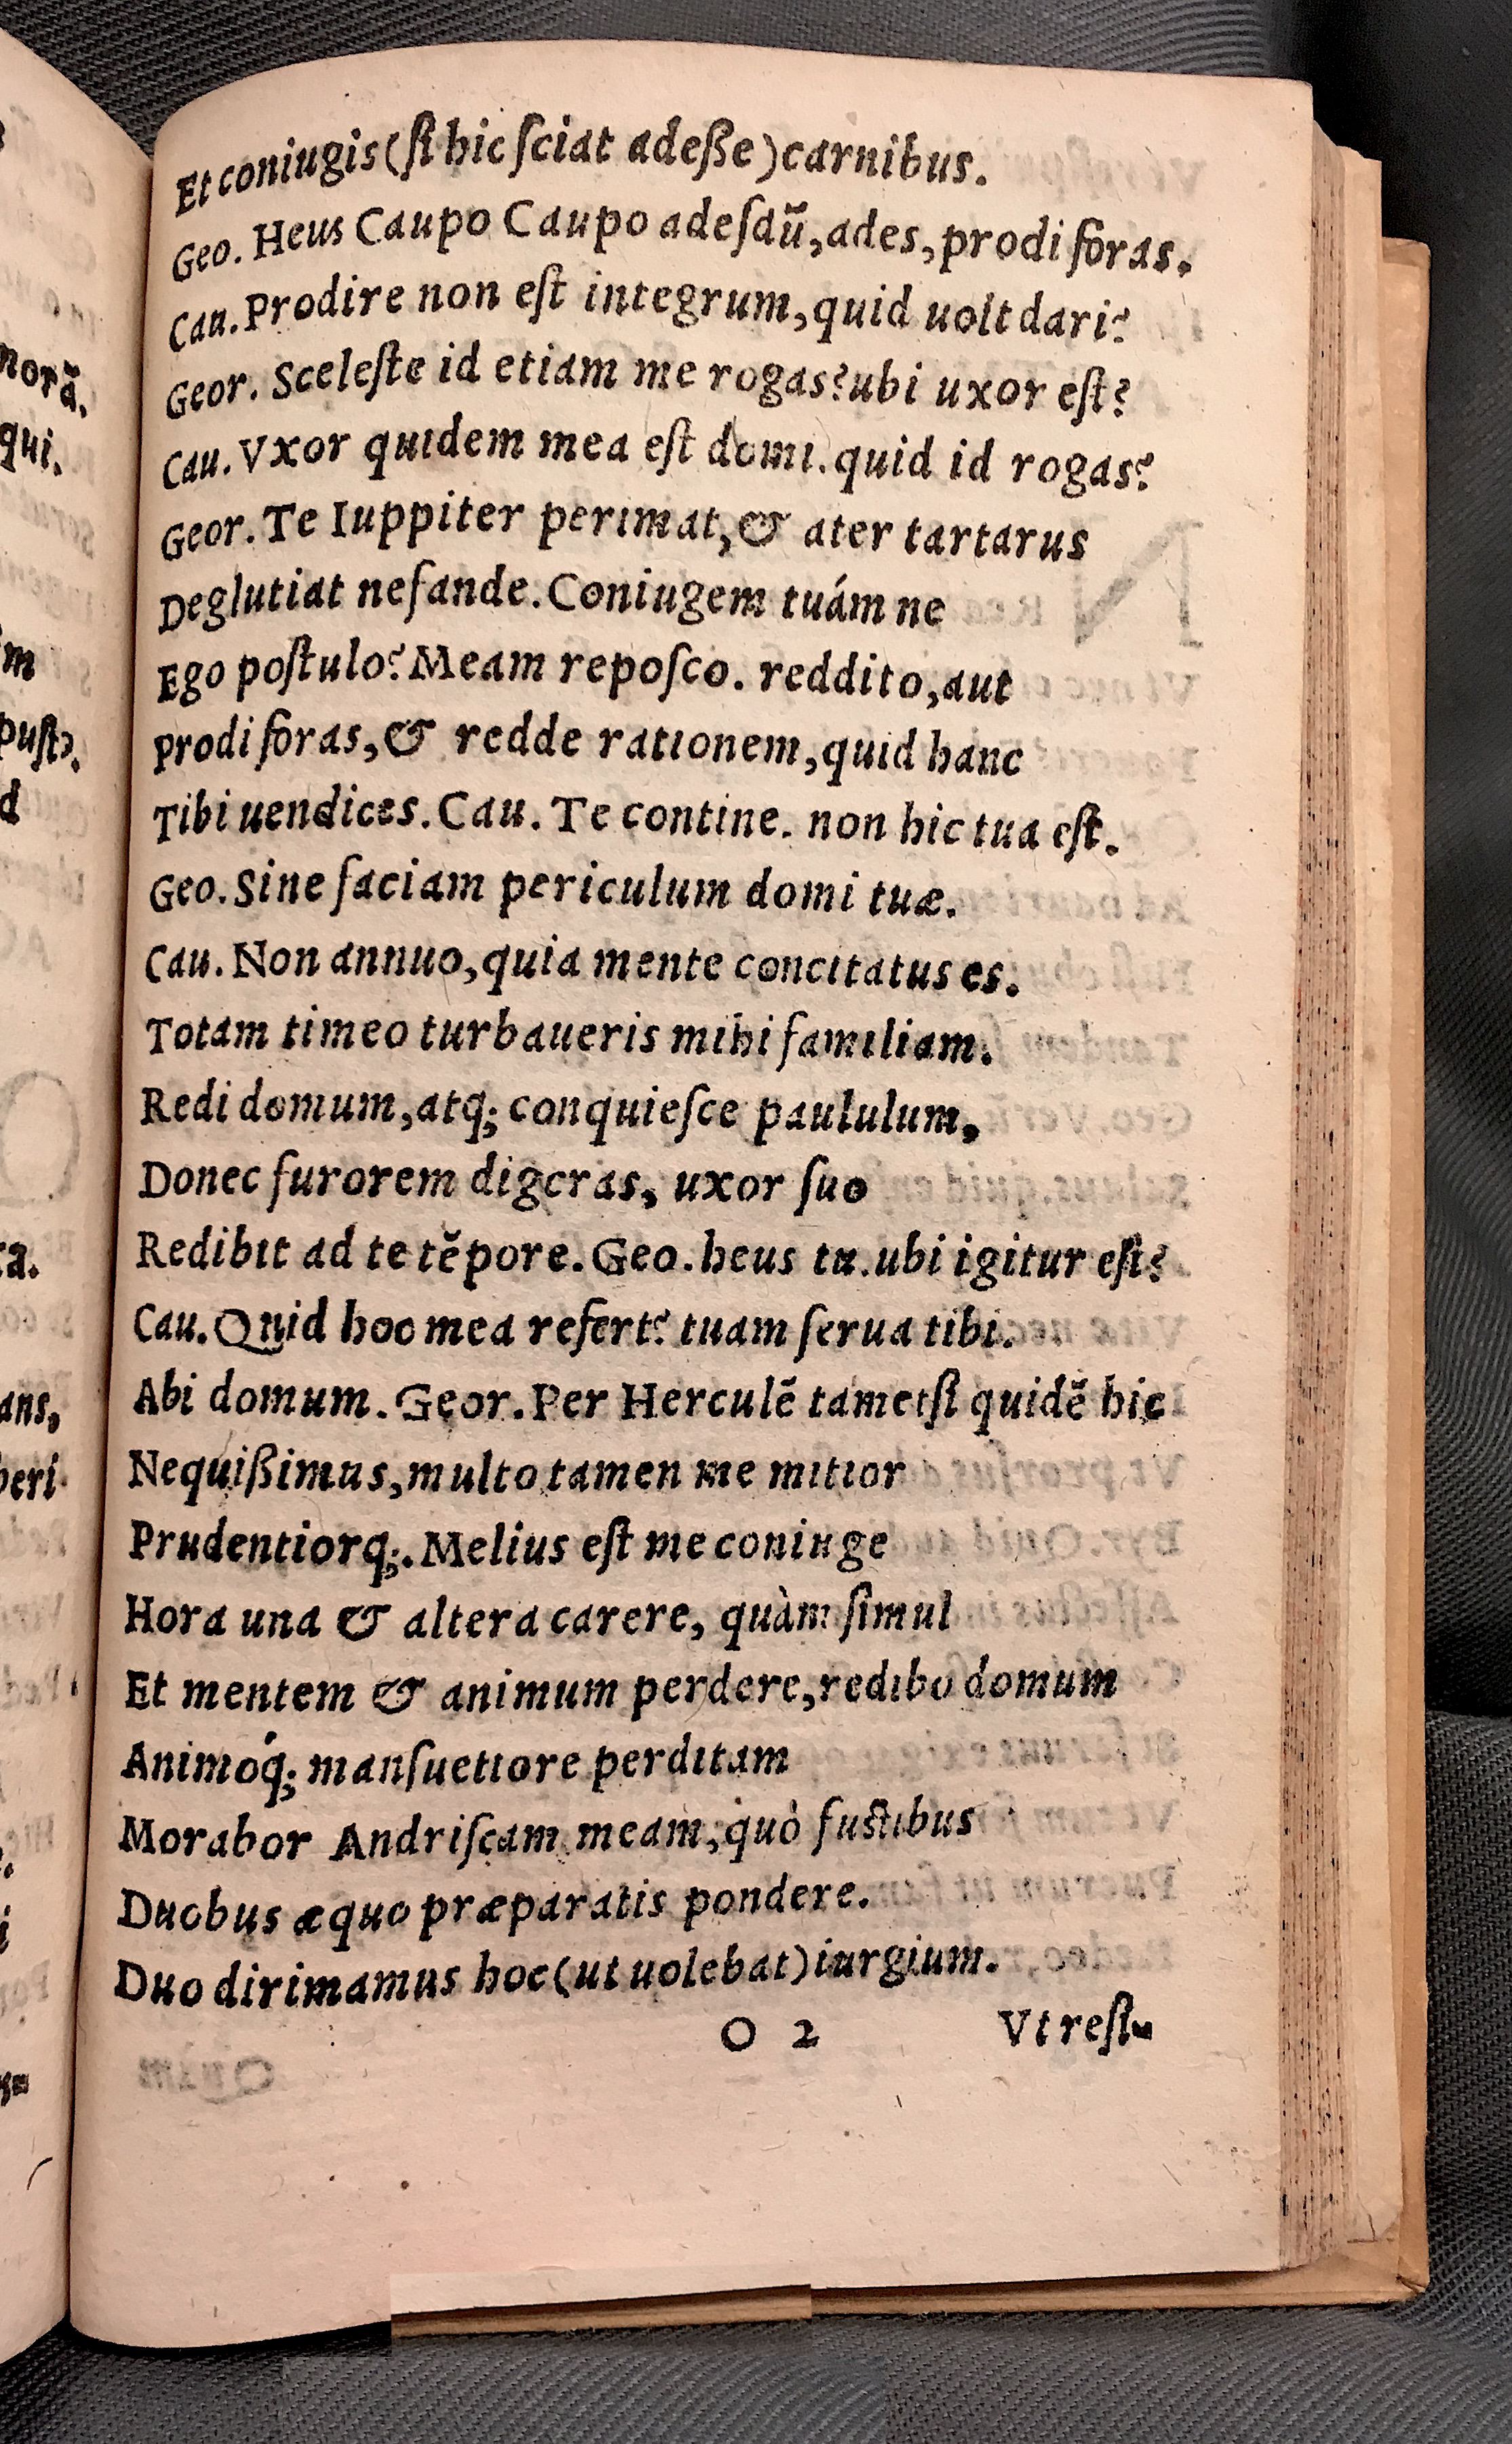 Et coniugis (ſi hic ſciat adeße) carnibus.
Geo. Heus Caupo Caupo adeſdũ, ades, prodi foras.
Cau. Prodire non eſt integrum, quid uolt dari?
Geor. Sceleſte id etiam me rogas? ubi uxor eſt?
Cau. Vxor quidem mea eſt domi. quid id rogas?
Geor. Te Iuppiter perimat, & ater tartarus
Deglutiat nefande. Coniugem tuám ne
Ego poſtulo? Meam repoſco. reddito, aut
Prodi foras, & redde rationem, quid hanc
Tibi uendices. Cau. Te contine. non hic tua eſt.
Geo. Sine faciam periculum domi tuæ.
Cau. Non annuo, quia mente concitatus es.
Totam timeo turbaueris mihi familiam.
Redi domum, atq; conquieſce paululum,
Donec furorem digeras, uxor ſuo
Redibit ad te tẽpore. Geo. heus tu. ubi igitur eſt?
Cau. Quid hoc mea refert? tuam ſerua tibi.
Abi domum. Geor. Per Herculẽ tametſi quidẽ hic
Nequißimus, multo tamen me mitior
Prudentiorq;. Melius eſt me coniuge
Hora una & altera carere, quàm ſimul
Et mentem & animum perdere, redibo domum
Animóq; manſuetiore perditam
Morabor Andriſcam meam, quò fuſtibus
Duobus æquo præparatis pondere.
Duo dirimamus hoc (ut uolebat) iurgium.
O 2 Vt reſti-